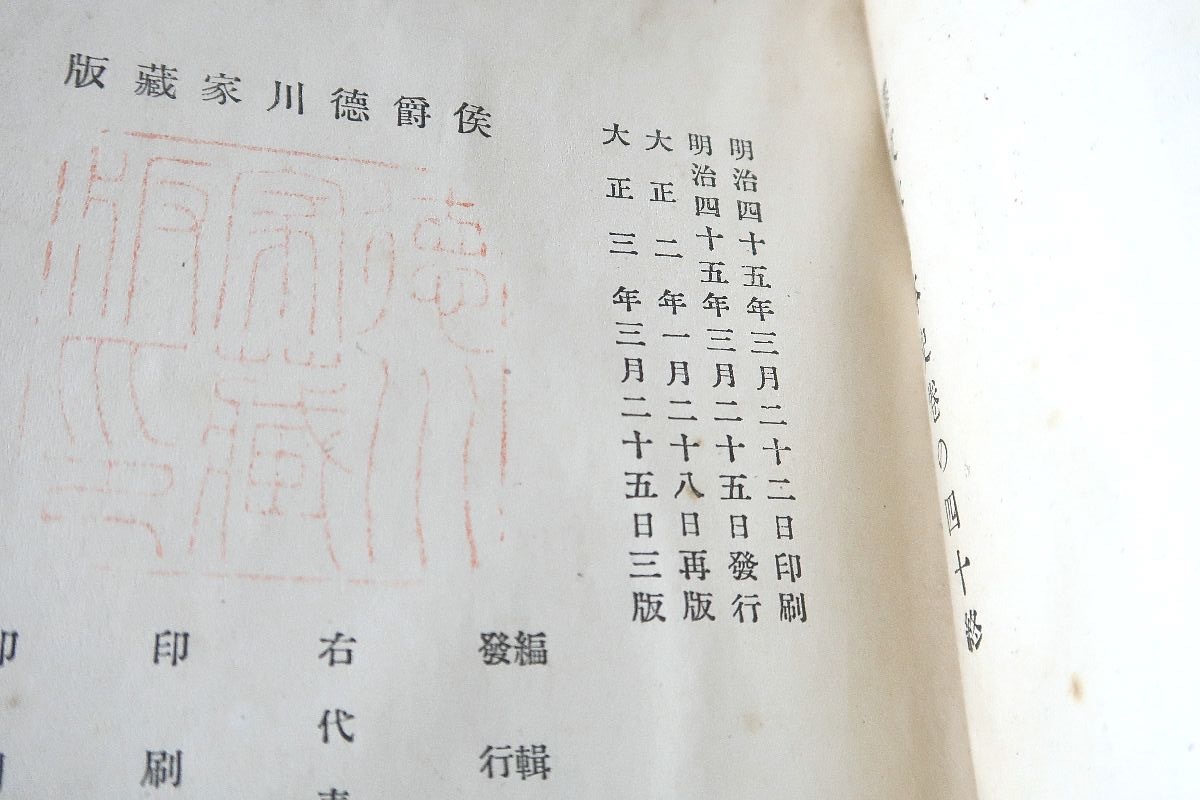 卷の四十終
明治四十五年三月二十二日印刷
明治四十五年三月二十五日發行
大正二年一月二十八日再版
大正三年三月二十五日三版
侯爵德川家藏版
德川
家藏
版印
編輯
發行
右代表
印刷
印刷